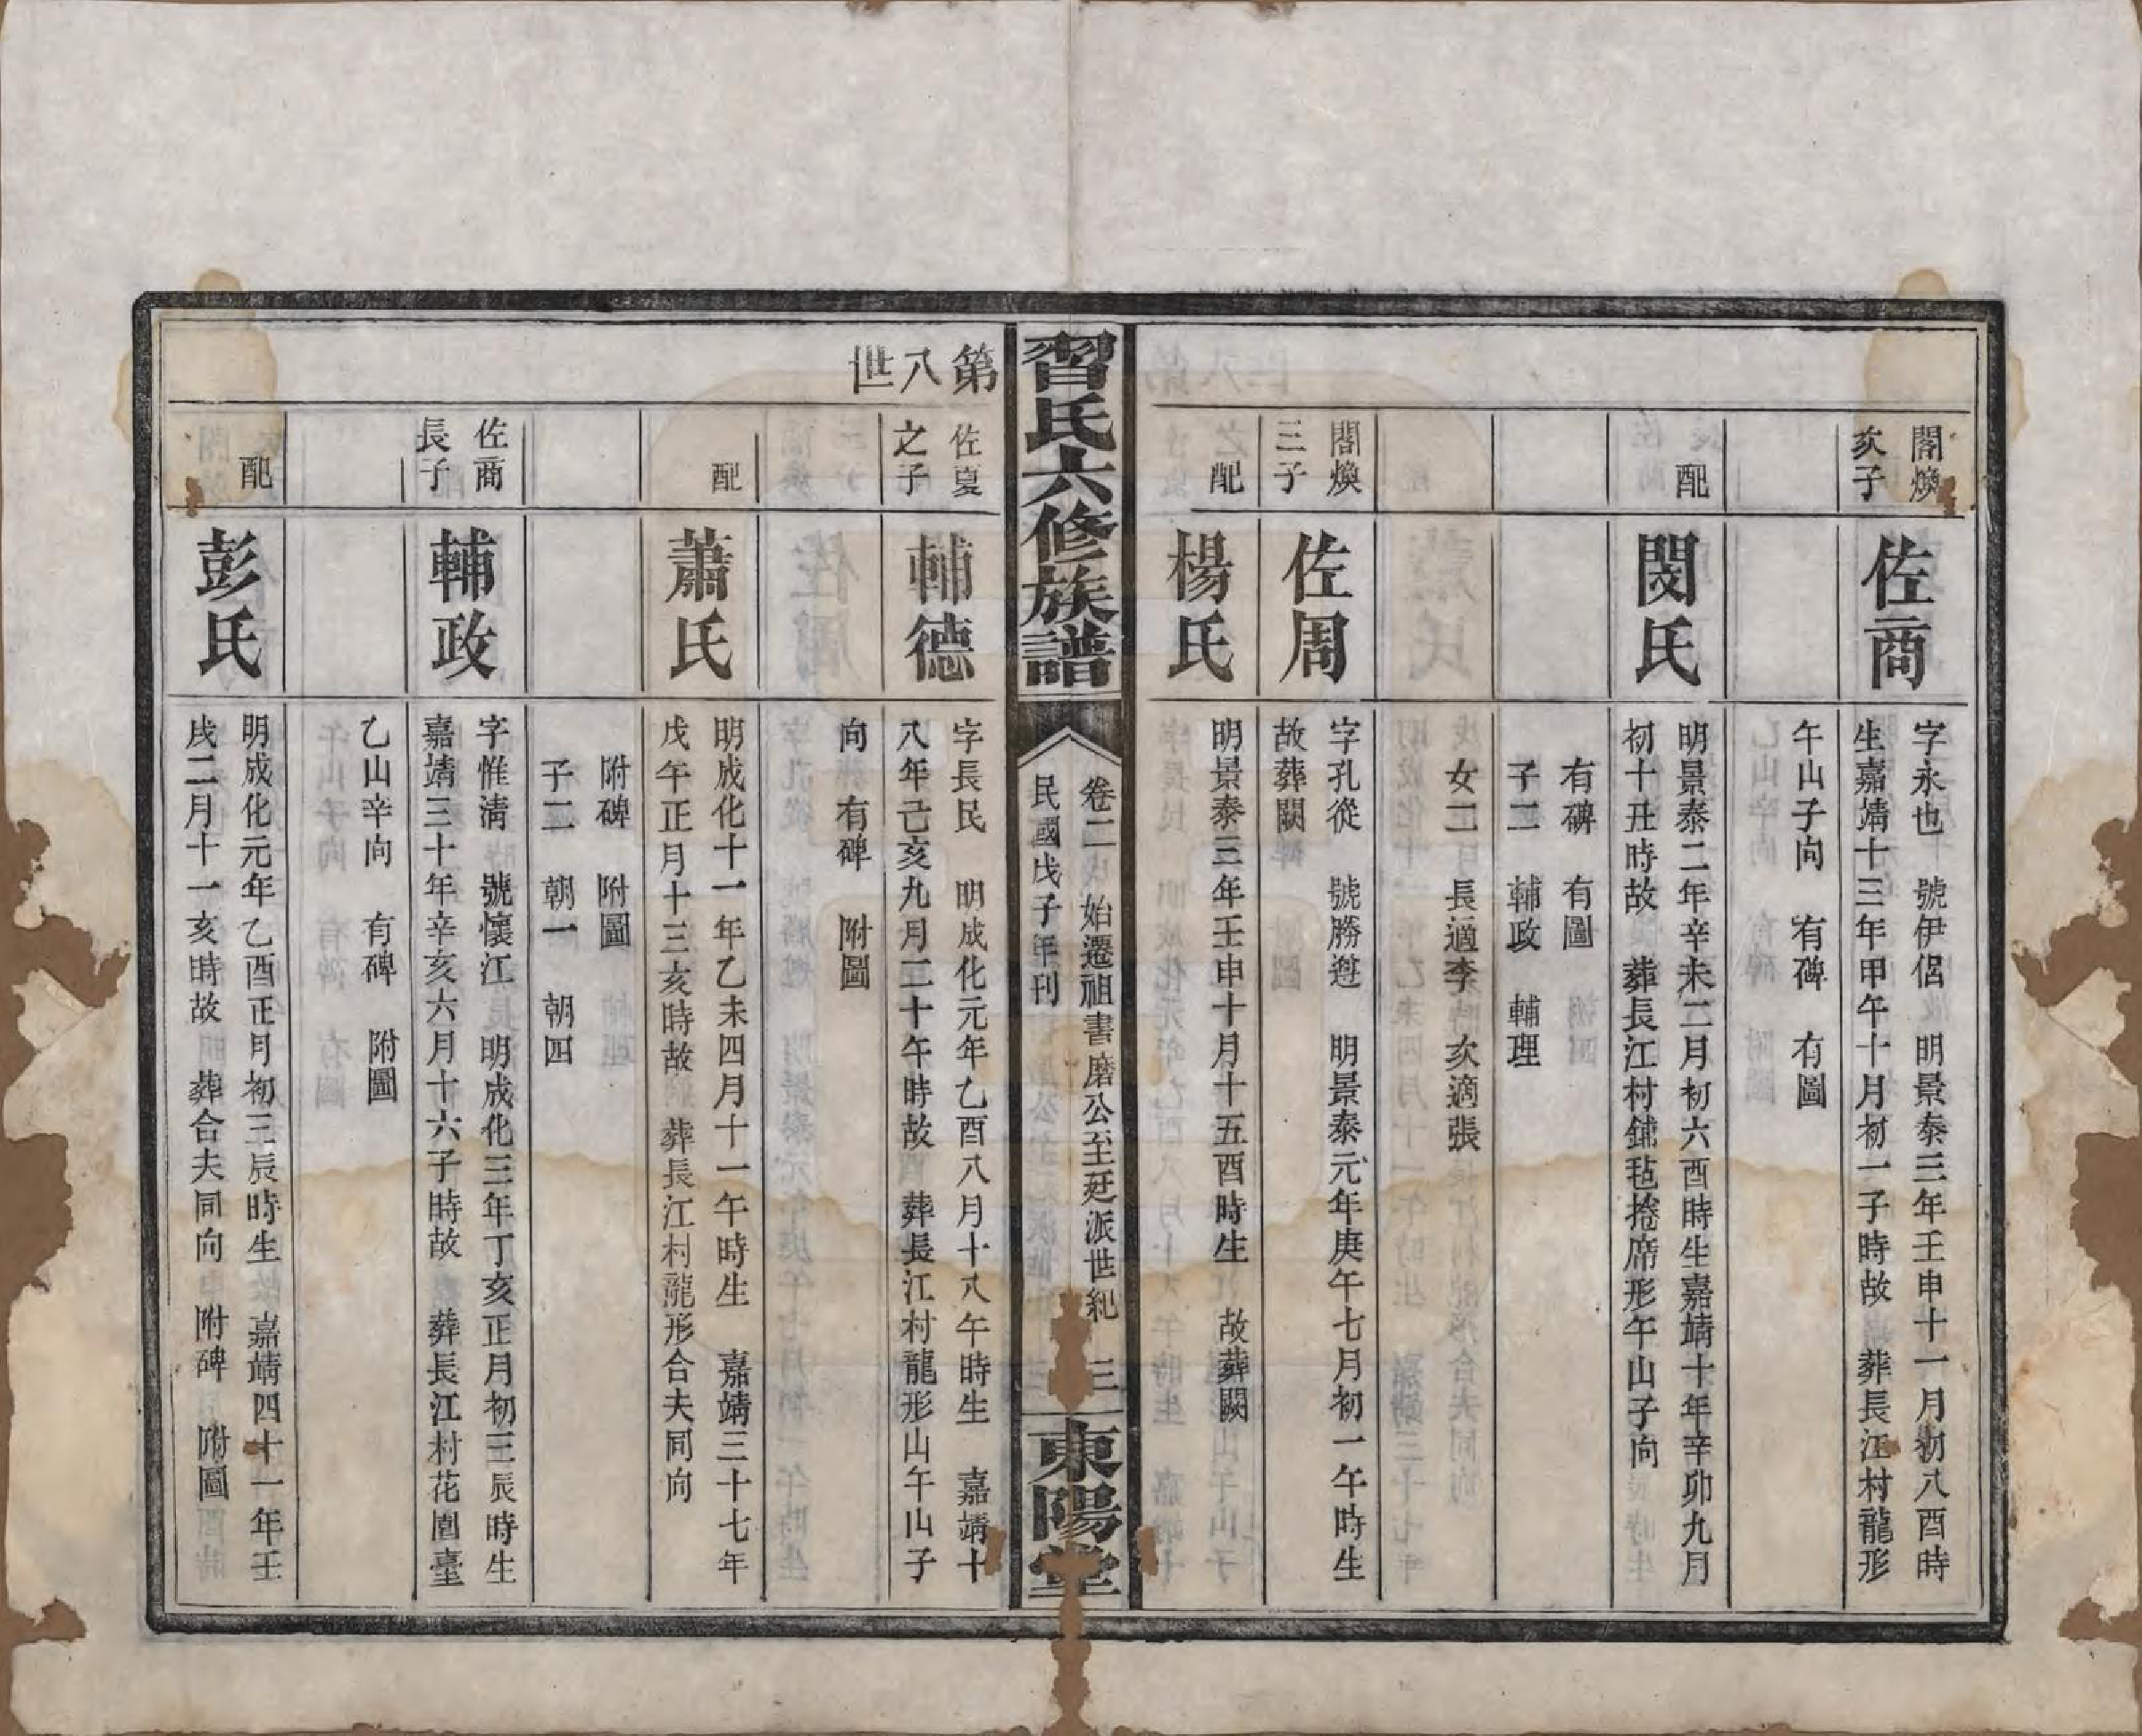 閣煥
亥子
佐商
字永也　號伊侶　明景泰三年壬申十一月初八酉時
生嘉靖十三年甲午十月初一子時故　葬長江村龍形
午山子向　有碑　有圖
配
閔氏
明景泰二年辛未二月初六酉時生嘉靖十年辛卯九月
初十丑時故　葬長江村鋪毡捲席形午山子向
有碑　有圖
子二　輔政　輔理
女二　長適李　亥適張
閣煥
三子
佐周
字孔從　號勝愆　明景泰元年庚午七月初一午時生
故葬闕
配
楊氏
明景泰三年壬申十月十五酉時生　故葬闕
習氏六修族譜
卷二　始遷祖書磨公至廷派世紀　三
民國戊子年刊
東陽堂
第八世
佐夏
之子
輔德
字長民　明成化元年乙酉八月十八午時生　嘉靖十
八年己亥九月二十午時故　葬長江村龍形山午山子
向　有碑　附圖
配
蕭氏
明成化十一年乙未四月十一午時生　嘉靖三十七年
戊午正月十三亥時故　葬長江村龍形合夫同向
附碑　附圖
子二　朝一　朝四
佐商
長子
輔政
字惟清　號懷江　明成化三年丁亥正月初三辰時生
嘉靖三十年辛亥六月十六子時故　葬長江村花園臺
乙山辛向　有碑　附圖
配
彭氏
明成化元年乙酉正月初三辰時生　嘉靖四十一年壬
戌二月十一亥時故　葬合夫同向　附碑　附圖